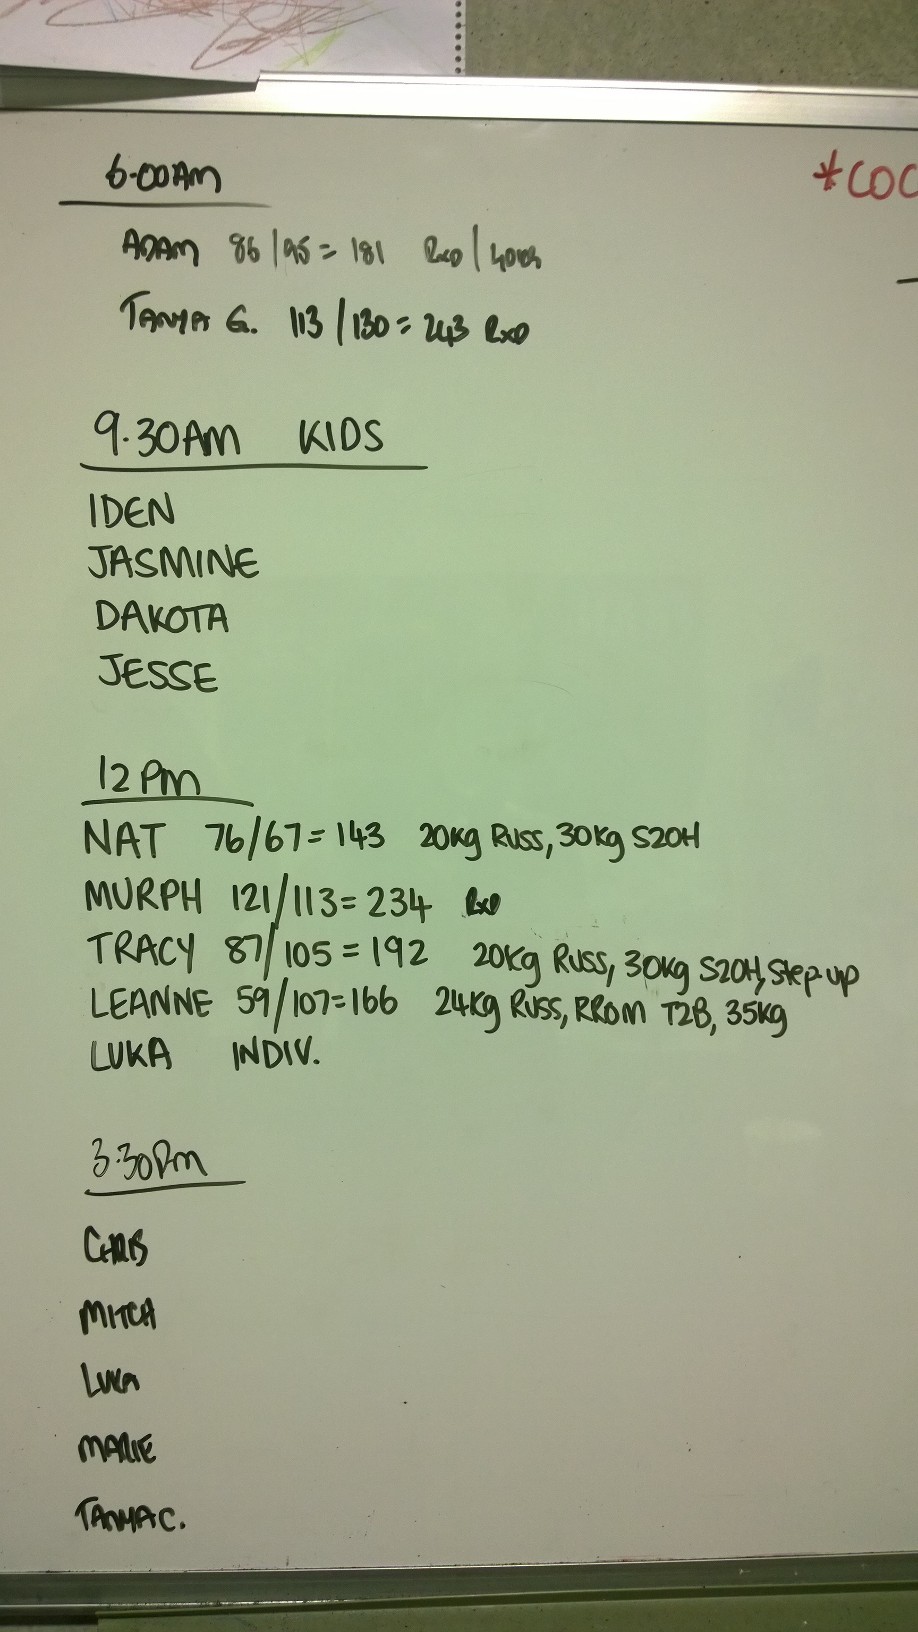 6.00AM
*COC
ADAM 86/95=181 RXD/40KG
TANYA G. 113/130=243 RXD
9.30AM KIDS
IDEN
JASMINE
DAKOTA
JESSE
12PM
NAT 76/67=143 20Kg RUSS, 30Kg S2OH
MURPH 121/113=234 RXD
TRACY 87/105=192 20Kg RUSS, 30Kg S2OH, Step-up
LEANNE 59/107=166 24Kg RUSS, RROM T2B, 35Kg
LUKA INDIV.
3.30PM
CHRIS
MITCH
LUKA
MARIE
TANYA C.